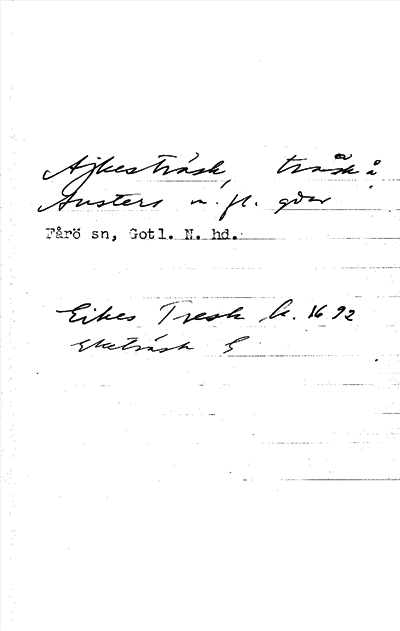 Ajkesträsk, träsk å
Austers m. fl. gdar
Fårö sn, Gotl. N. hd.
Eikes Tresk k. 1692
Eketräsk E